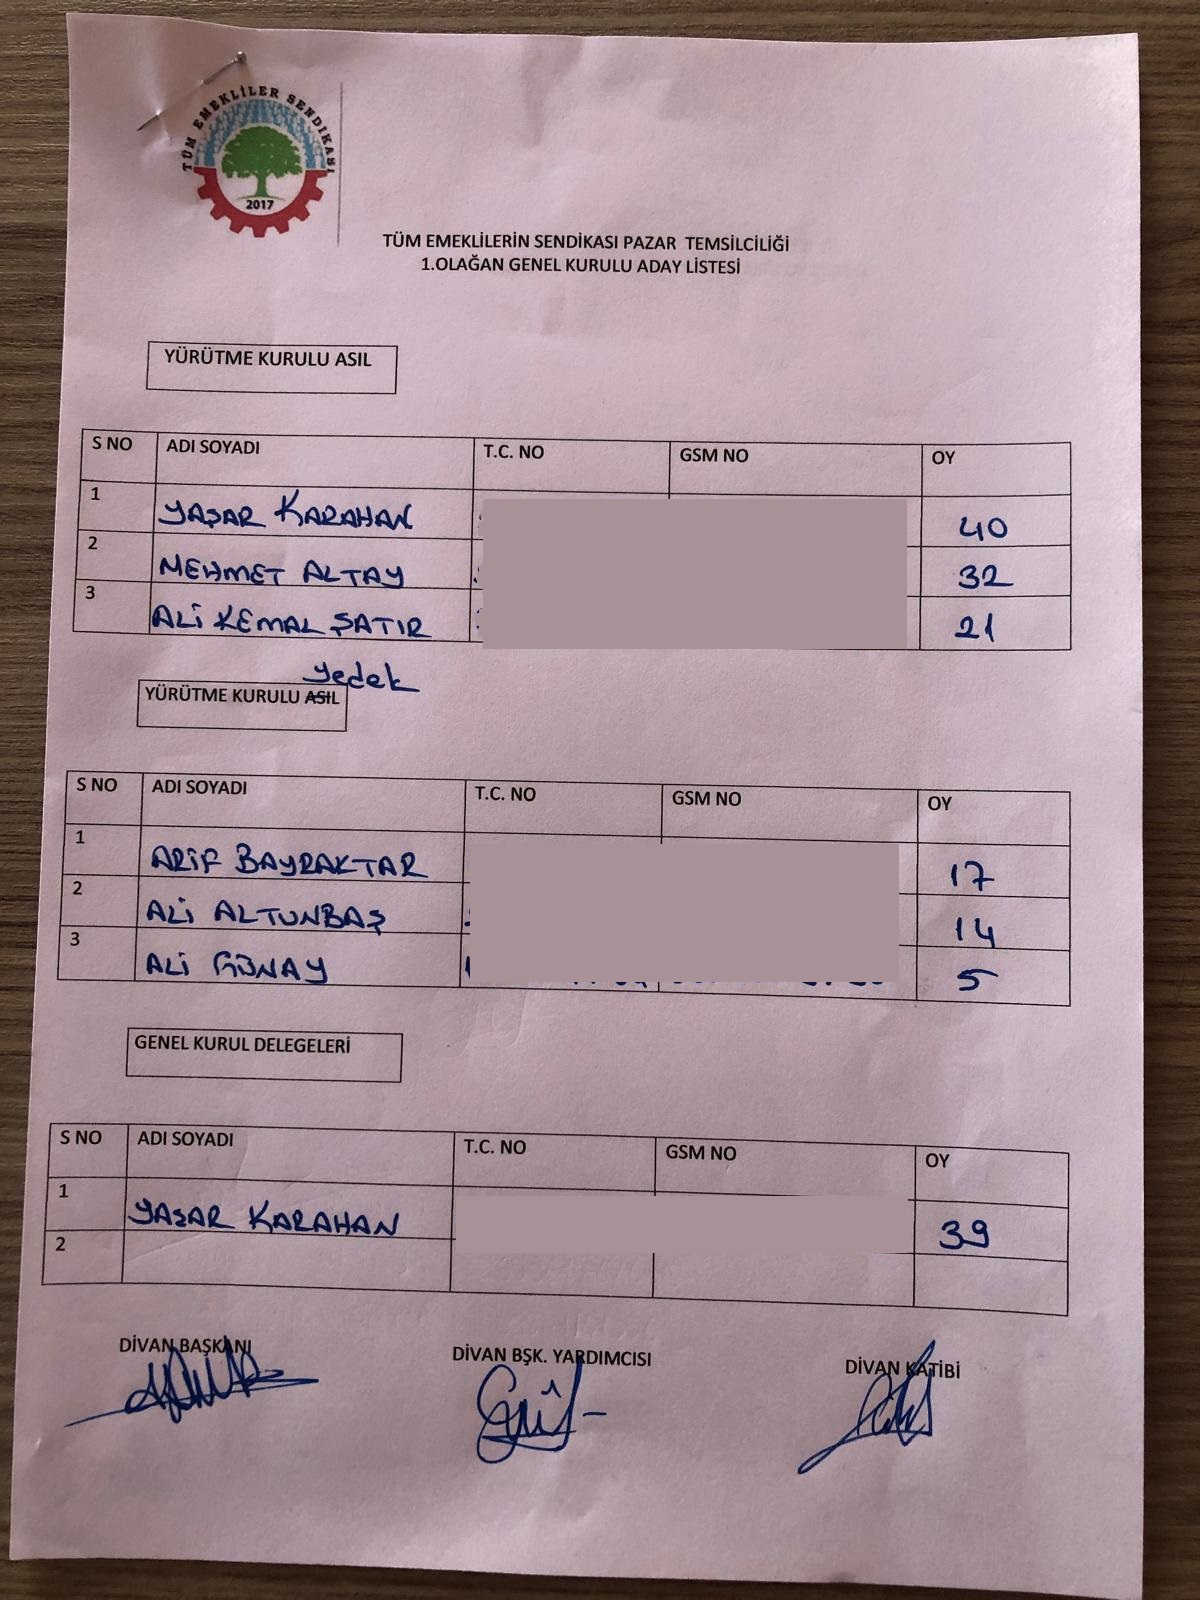 TÜM EMEKLİLER SENDİKASI
2017
TÜM EMEKLİLERİN SENDİKASI PAZAR TEMSİLCİLİĞİ
1.OLAĞAN GENEL KURULU ADAY LİSTESİ
YÜRÜTME KURULU ASIL
S NO ADI SOYADI T.C. NO GSM NO OY
1 YAŞAR KARAHAN 40
2 MEHMET ALTAY 32
3 ALİ KEMAL ŞATIR 21
yedek
YÜRÜTME KURULU ASIL
S NO ADI SOYADI T.C. NO GSM NO OY
1 ARİF BAYRAKTAR 17
2 ALİ ALTUNBAŞ 14
3 ALİ GÜNAY 5
GENEL KURUL DELEGELERİ
S NO ADI SOYADI T.C. NO GSM NO OY
1 YAŞAR KARAHAN 39
2
DİVAN BAŞKANI DİVAN BŞK. YARDIMCISI DİVAN KATİBİ